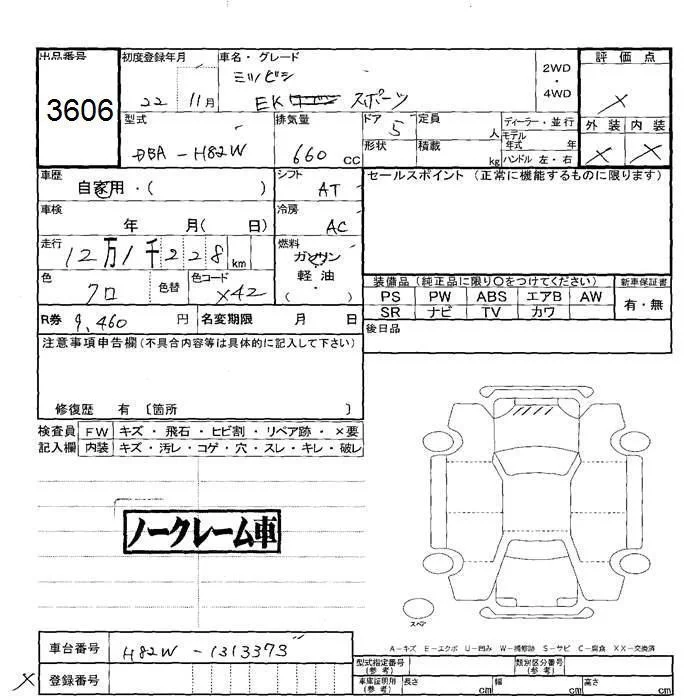 出品番号 初度登録年月 車名・グレード 評価点
3606 22 11月 ミツビシ 2WD ・ 4WD ×
EK スポーツ
型式 排気量 ドア 定員 ディーラー・並行 外装 内装
DBA-H82W 660 CC 5 人 モデル年式 年 × ×
形状 積載 kg ハンドル 左・右
車歴 シフト セールスポイント (正常に機能するものに限ります)
自家用・( ) AT
車検 冷房
年 月( 日) AC
走行 燃料
12万1千228km ガソリン
軽油
( )
色 色替 色コード 装備品 (純正品に限り○をつけてください) 新車保証書
クロ X42 PS PW ABS エアB AW 有・無
SR ナビ TV カワ
R券 9,460 円 名変期限 月 日 後日品
注意事項申告欄 (不具合内容等は具体的に記入して下さい)
修復歴 有 〔箇所 〕
検査員 FW キズ・飛石・ヒビ割・リペア跡・×要
記入欄 内装 キズ・汚レ・コゲ・穴・スレ・キレ・破レ
ノークレーム車
スペア
A-キズ E-エクボ U-凹み W-補修跡 S-サビ C-腐食 XX-交換済
車台番号 H82W-1313373
型式指定番号 (参考) 類別区分番号 (参考)
× 登録番号 車庫証明用 (参考) 長さ cm 幅 cm 高さ cm